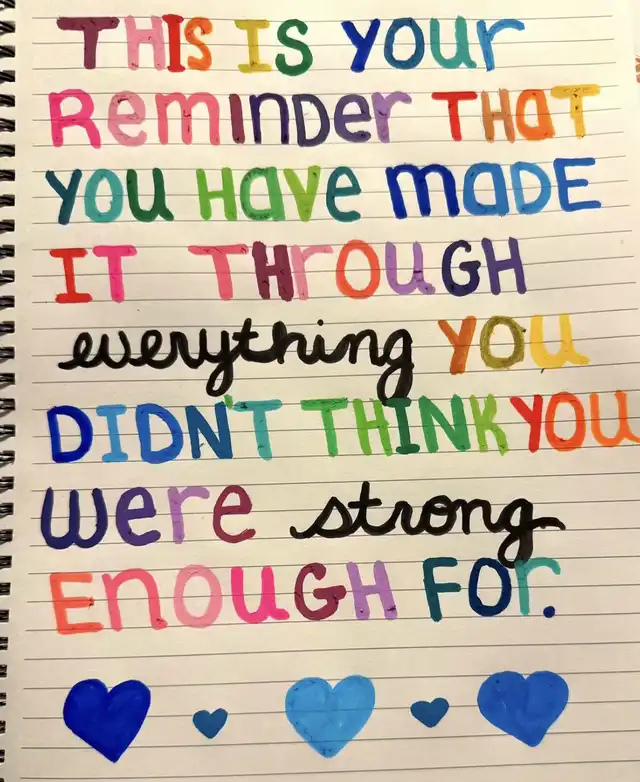 THIS IS YOUr
Reminder THaT
YOU HaVe maDE
IT THrOUGH
everything YOU
DIDN'T THINK YOU
were strong
Enough FOr.